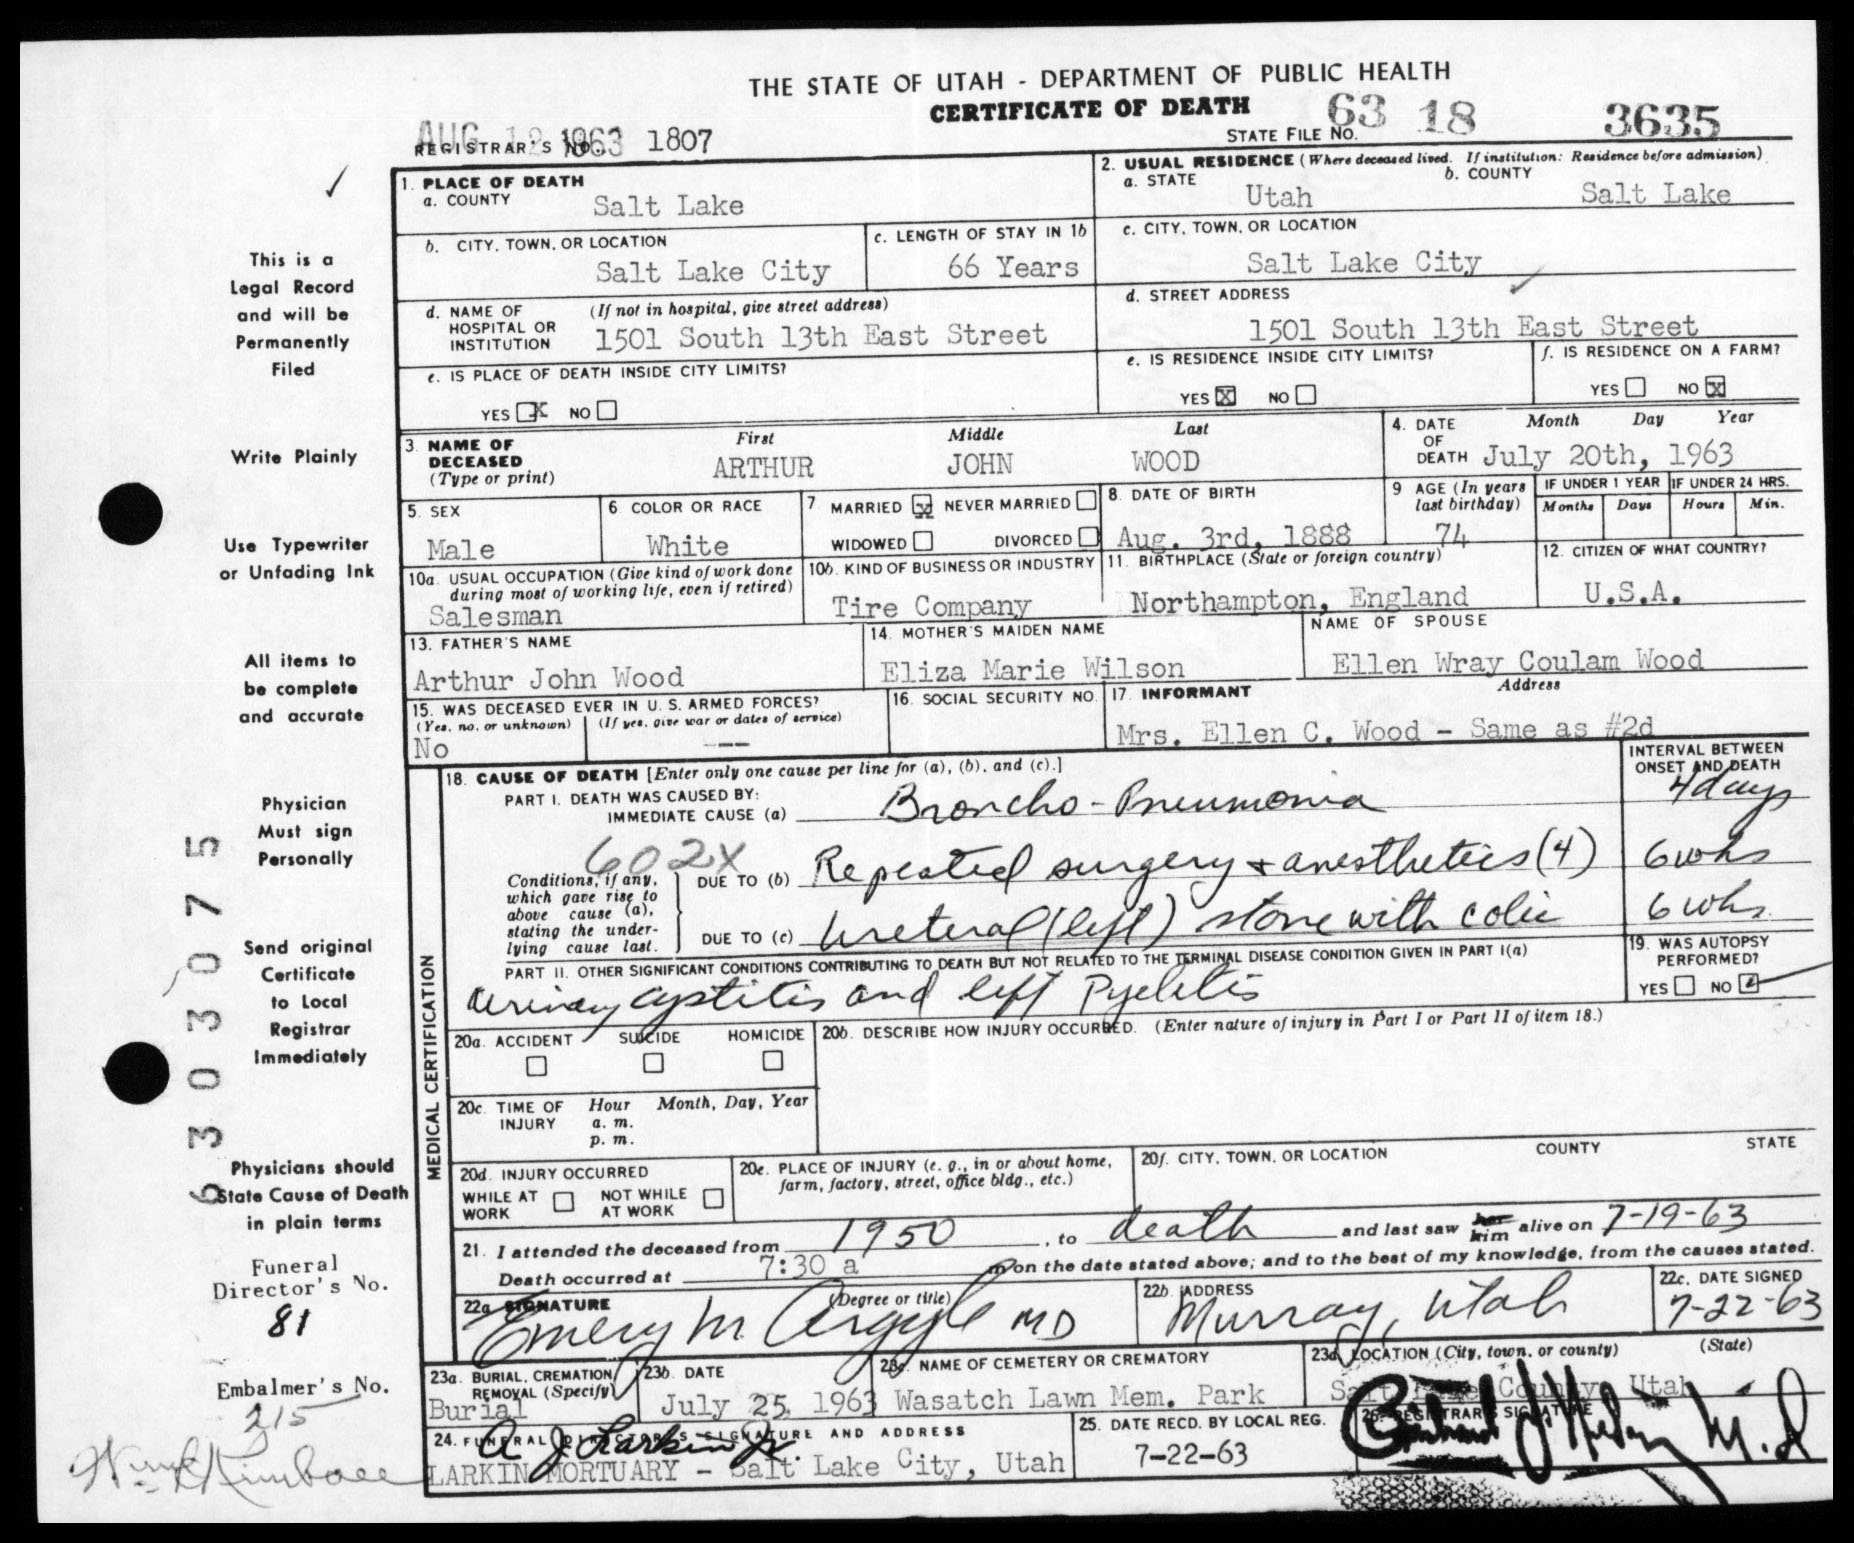 THE STATE OF UTAH - DEPARTMENT OF PUBLIC HEALTH
CERTIFICATE OF DEATH
STATE FILE NO. 63 18 3635
AUG 1963
REGISTRAR'S NO. 1807
This is a
Legal Record
and will be
Permanently
Filed
Write Plainly
Use Typewriter
or Unfading Ink
All items to
be complete
and accurate
Physician
Must sign
Personally
Send original
Certificate
to Local
Registrar
Immediately
Physicians should
State Cause of Death
in plain terms
Funeral
Director's No.
81
Embalmer's No.
215
6303075
1. PLACE OF DEATH
a. COUNTY Salt Lake
2. USUAL RESIDENCE (Where deceased lived. If institution: Residence before admission)
a. STATE Utah b. COUNTY Salt Lake
b. CITY, TOWN, OR LOCATION Salt Lake City
c. LENGTH OF STAY IN 1b 66 Years
c. CITY, TOWN, OR LOCATION Salt Lake City
d. NAME OF HOSPITAL OR INSTITUTION (If not in hospital, give street address) 1501 South 13th East Street
d. STREET ADDRESS 1501 South 13th East Street
e. IS PLACE OF DEATH INSIDE CITY LIMITS?
YES X NO
e. IS RESIDENCE INSIDE CITY LIMITS?
YES X NO
f. IS RESIDENCE ON A FARM?
YES NO X
3. NAME OF DECEASED (Type or print)
First Middle Last
ARTHUR JOHN WOOD
4. DATE OF DEATH Month Day Year
July 20th, 1963
5. SEX Male
6. COLOR OR RACE White
7 MARRIED X NEVER MARRIED
WIDOWED DIVORCED
8. DATE OF BIRTH Aug. 3rd, 1888
9 AGE (In years last birthday) 74
IF UNDER 1 YEAR Months Days
IF UNDER 24 HRS. Hours Min.
10a. USUAL OCCUPATION (Give kind of work done during most of working life, even if retired) Salesman
10b. KIND OF BUSINESS OR INDUSTRY Tire Company
11. BIRTHPLACE (State or foreign country) Northampton, England
12. CITIZEN OF WHAT COUNTRY? U.S.A.
13. FATHER'S NAME Arthur John Wood
14. MOTHER'S MAIDEN NAME Eliza Marie Wilson
NAME OF SPOUSE Ellen Wray Coulam Wood
15. WAS DECEASED EVER IN U. S. ARMED FORCES?
(Yes, no, or unknown) (If yes, give war or dates of service)
No ---
16. SOCIAL SECURITY NO.
17. INFORMANT Address
Mrs. Ellen C. Wood - Same as #2d
MEDICAL CERTIFICATION
18. CAUSE OF DEATH [Enter only one cause per line for (a), (b), and (c).]
INTERVAL BETWEEN ONSET AND DEATH
PART I. DEATH WAS CAUSED BY:
IMMEDIATE CAUSE (a) Broncho-Pneumonia 4 days
602X
Conditions, if any, which gave rise to above cause (a), stating the underlying cause last.
DUE TO (b) Repeated surgery + anesthetics (4) 6 wks
DUE TO (c) Ureteral (left) stone with colic 6 wks.
PART II. OTHER SIGNIFICANT CONDITIONS CONTRIBUTING TO DEATH BUT NOT RELATED TO THE TERMINAL DISEASE CONDITION GIVEN IN PART I(a)
Urinary cystitis and left Pyelitis
19. WAS AUTOPSY PERFORMED?
YES NO
20a. ACCIDENT SUICIDE HOMICIDE
20b. DESCRIBE HOW INJURY OCCURRED. (Enter nature of injury in Part I or Part II of item 18.)
20c. TIME OF INJURY Hour Month, Day, Year
a. m.
p. m.
20d. INJURY OCCURRED
WHILE AT WORK NOT WHILE AT WORK
20e. PLACE OF INJURY (e. g., in or about home, farm, factory, street, office bldg., etc.)
20f. CITY, TOWN, OR LOCATION COUNTY STATE
21. I attended the deceased from 1950, to death and last saw her him alive on 7-19-63
Death occurred at 7:30 a m on the date stated above; and to the best of my knowledge, from the causes stated.
22a SIGNATURE (Degree or title) Emery M. Argyle MD
22b. ADDRESS Murray, Utah
22c. DATE SIGNED 7-22-63
23a. BURIAL, CREMATION, REMOVAL (Specify) Burial
23b. DATE July 25, 1963
23c. NAME OF CEMETERY OR CREMATORY Wasatch Lawn Mem. Park
23d. LOCATION (City, town, or county) (State) Salt Lake County, Utah
24. FUNERAL DIRECTOR'S SIGNATURE AND ADDRESS
A J Larkin Jr.
LARKIN MORTUARY - Salt Lake City, Utah
25. DATE RECD. BY LOCAL REG. 7-22-63
26. REGISTRAR'S SIGNATURE
M.D